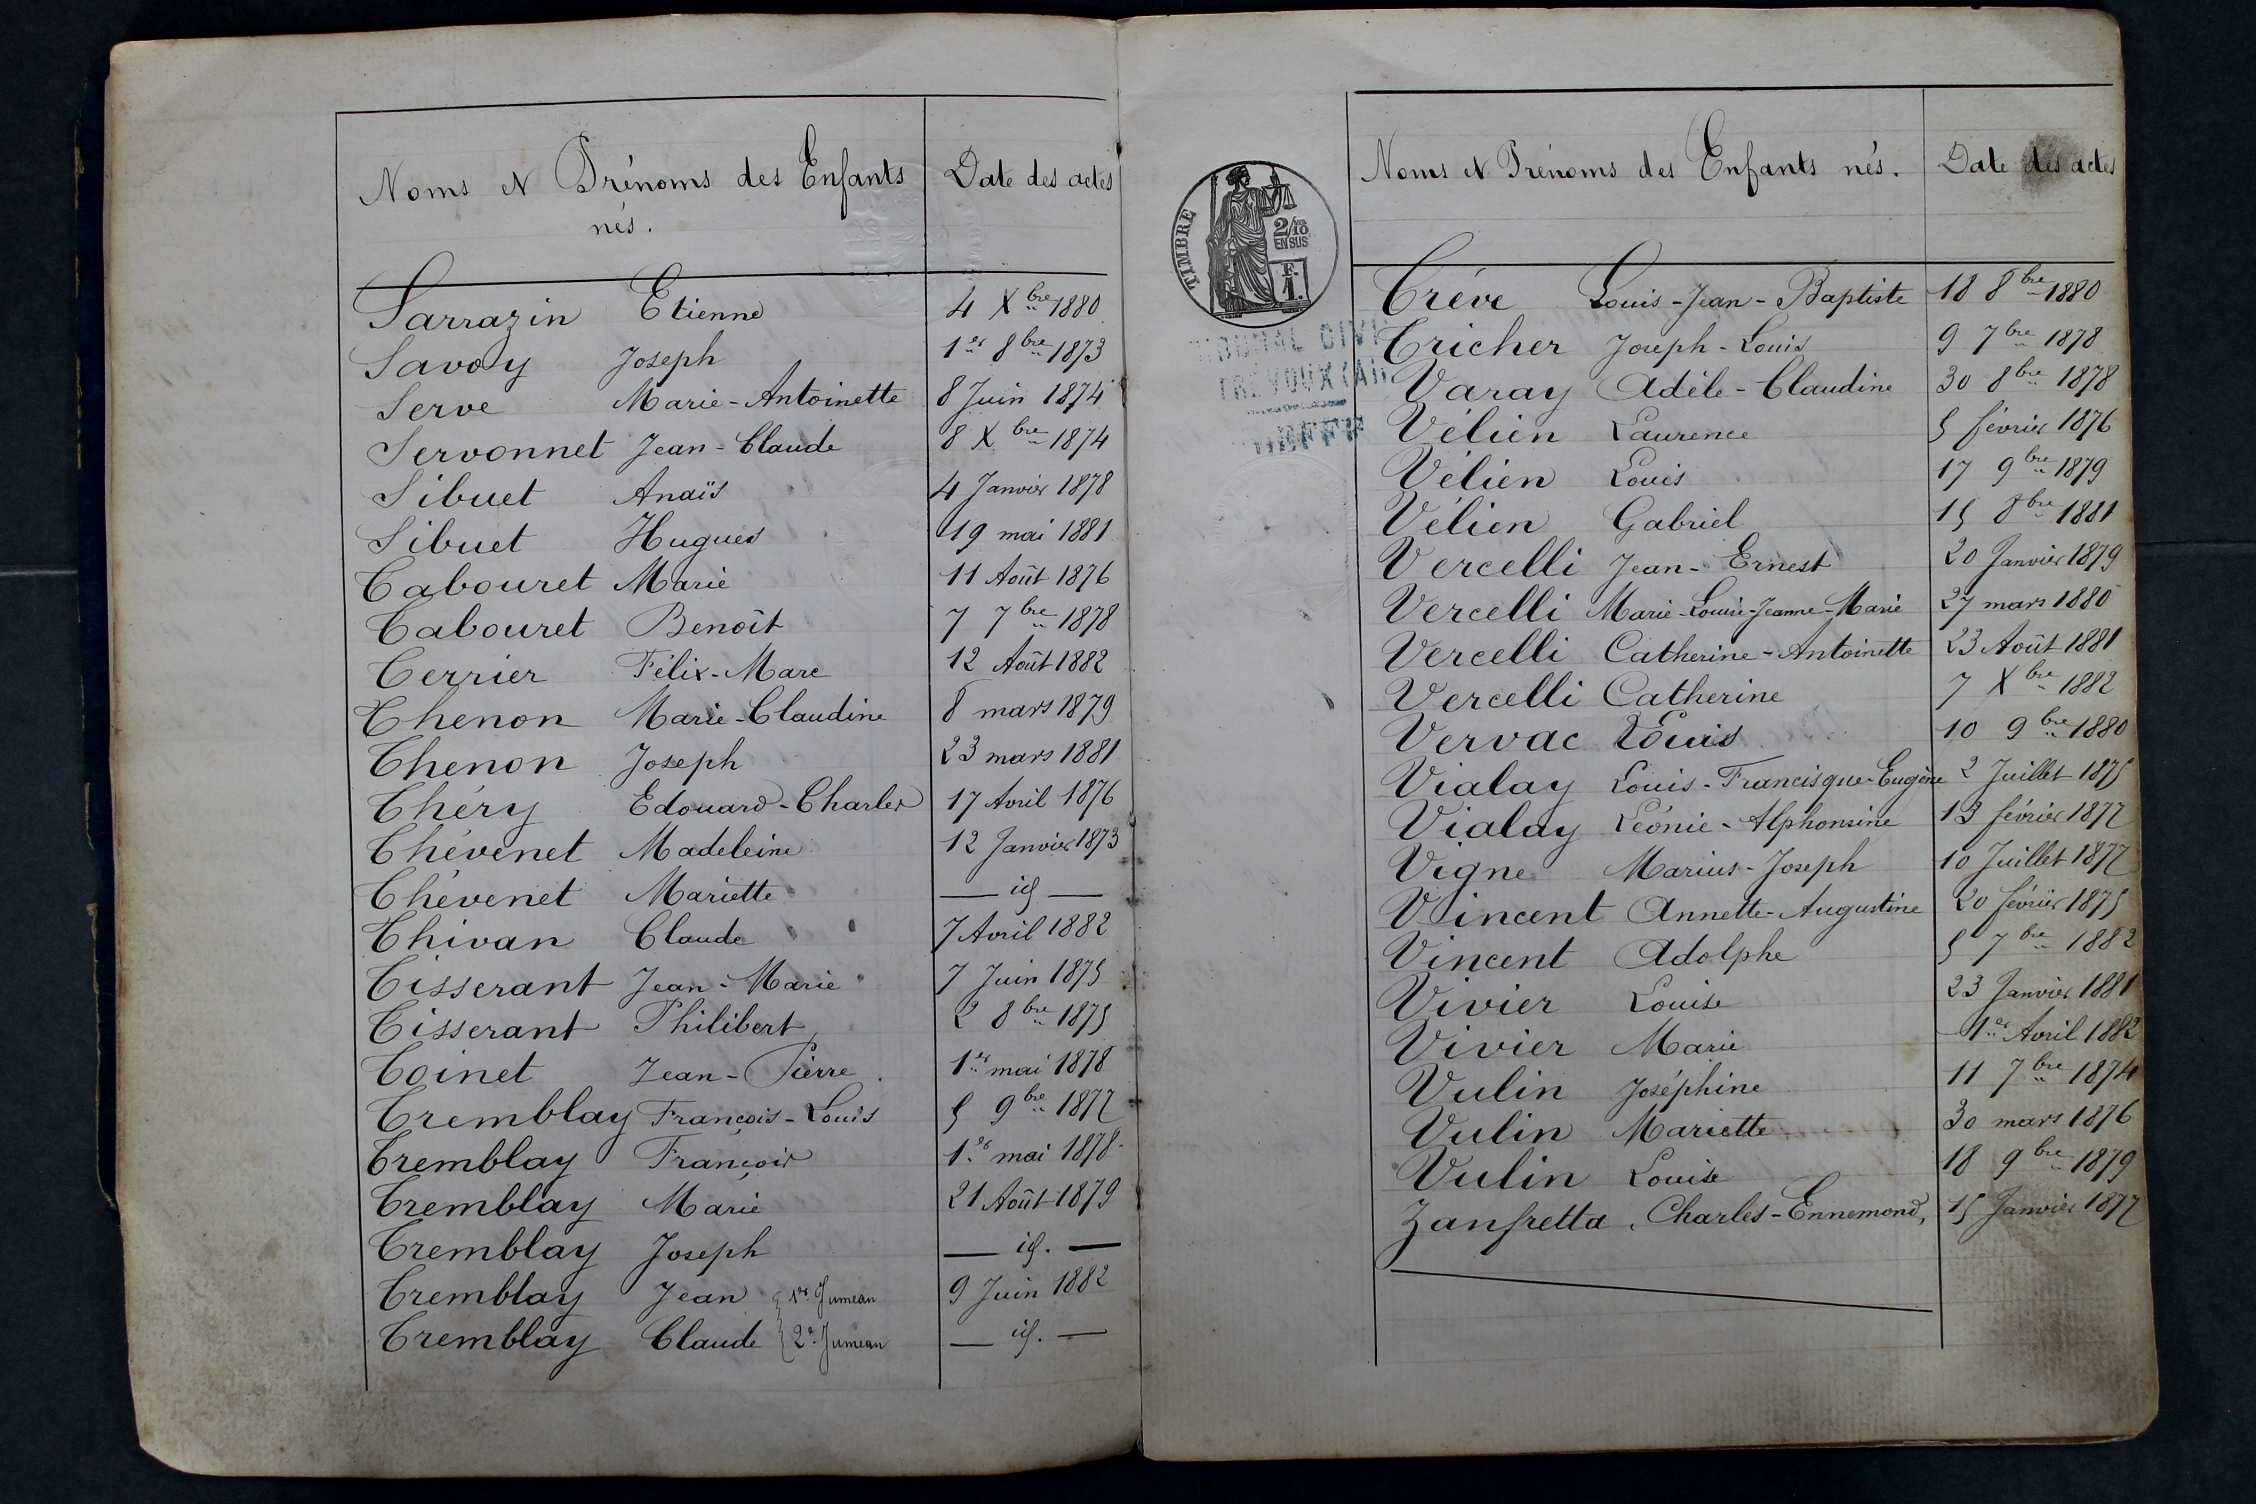 Noms et Prénoms des Enfants
nés.
Date des actes
Sarrazin Etienne 4 Xbre 1880
Savoy Joseph 1er 8bre 1873
Serve Marie-Antoinette 8 Juin 1874
Servonnet Jean-Claude 8 Xbre 1874
Sibuet Anaïs 4 Janvier 1878
Sibuet Hugues 19 mai 1881
Tabouret Marie 11 Août 1876
Tabouret Benoît 7 7bre 1878
Terrier Félix-Marc 12 Août 1882
Thenon Marie-Claudine 8 mars 1879
Thenon Joseph 23 mars 1881
Théry Edouard-Charles 17 Avril 1876
Thévenet Madeleine 12 Janvier 1873
Thévenet Mariette — id —
Thivan Claude 7 Avril 1882
Tisserant Jean-Marie 7 Juin 1875
Tisserant Philibert 2 8bre 1875
Toinet Jean-Pierre 1er mai 1878
Tremblay François-Louis 5 9bre 1877
Tremblay François 1er mai 1878
Tremblay Marie 21 Août 1879
Tremblay Joseph — id. —
Tremblay Jean 1er Jumeau 9 Juin 1882
Tremblay Claude 2e Jumeau — id. —
TIMBRE
2/10
EN SUS
F.
1.
TRIBUNAL CIVIL
TRÉVOUX (AIN)
GREFFE
Noms et Prénoms des Enfants nés.
Date des actes
Trève Louis-Jean-Baptiste 18 8bre 1880
Tricher Joseph-Louis 9 7bre 1878
Varay Adèle-Claudine 30 8bre 1878
Vélien Laurence 5 février 1876
Vélien Louis 17 9bre 1879
Vélien Gabriel 15 8bre 1881
Vercelli Jean-Ernest 20 Janvier 1879
Vercelli Marie-Louise-Jeanne-Marie 27 mars 1880
Vercelli Catherine-Antoinette 23 Août 1881
Vercelli Catherine 7 Xbre 1882
Vervac Louis 10 9bre 1880
Vialay Louis-Francisque-Eugène 2 Juillet 1875
Vialay Léonie-Alphonsine 13 février 1877
Vigne Marius-Joseph 10 Juillet 1877
Vincent Annette-Augustine 20 février 1875
Vincent Adolphe 5 7bre 1882
Vivier Louise 23 Janvier 1881
Vivier Marie 1er Avril 1882
Vulin Joséphine 11 7bre 1874
Vulin Mariette 30 mars 1876
Vulin Louise 18 9bre 1879
Zanfretta Charles-Ennemond, 15 Janvier 1877